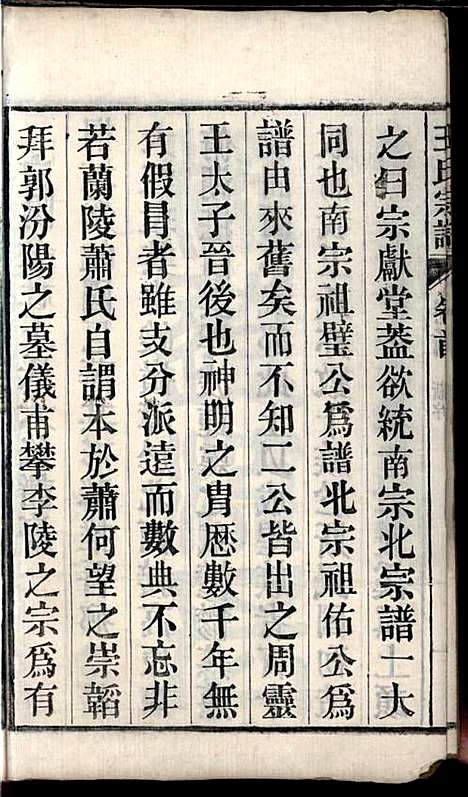 王氏宗譜
卷首
之曰宗獻堂葢欲統南宗北宗譜一大
同也南宗祖璧公爲譜北宗祖佑公爲
譜由來舊矣而不知二公皆出之周靈
王太子晉後也神明之胄歷數千年無
有假冐者雖支分派遠而數典不忘非
若蘭陵蕭氏自謂本於蕭何望之崇韜
拜郭汾陽之墓儀甫攀李陵之宗爲有